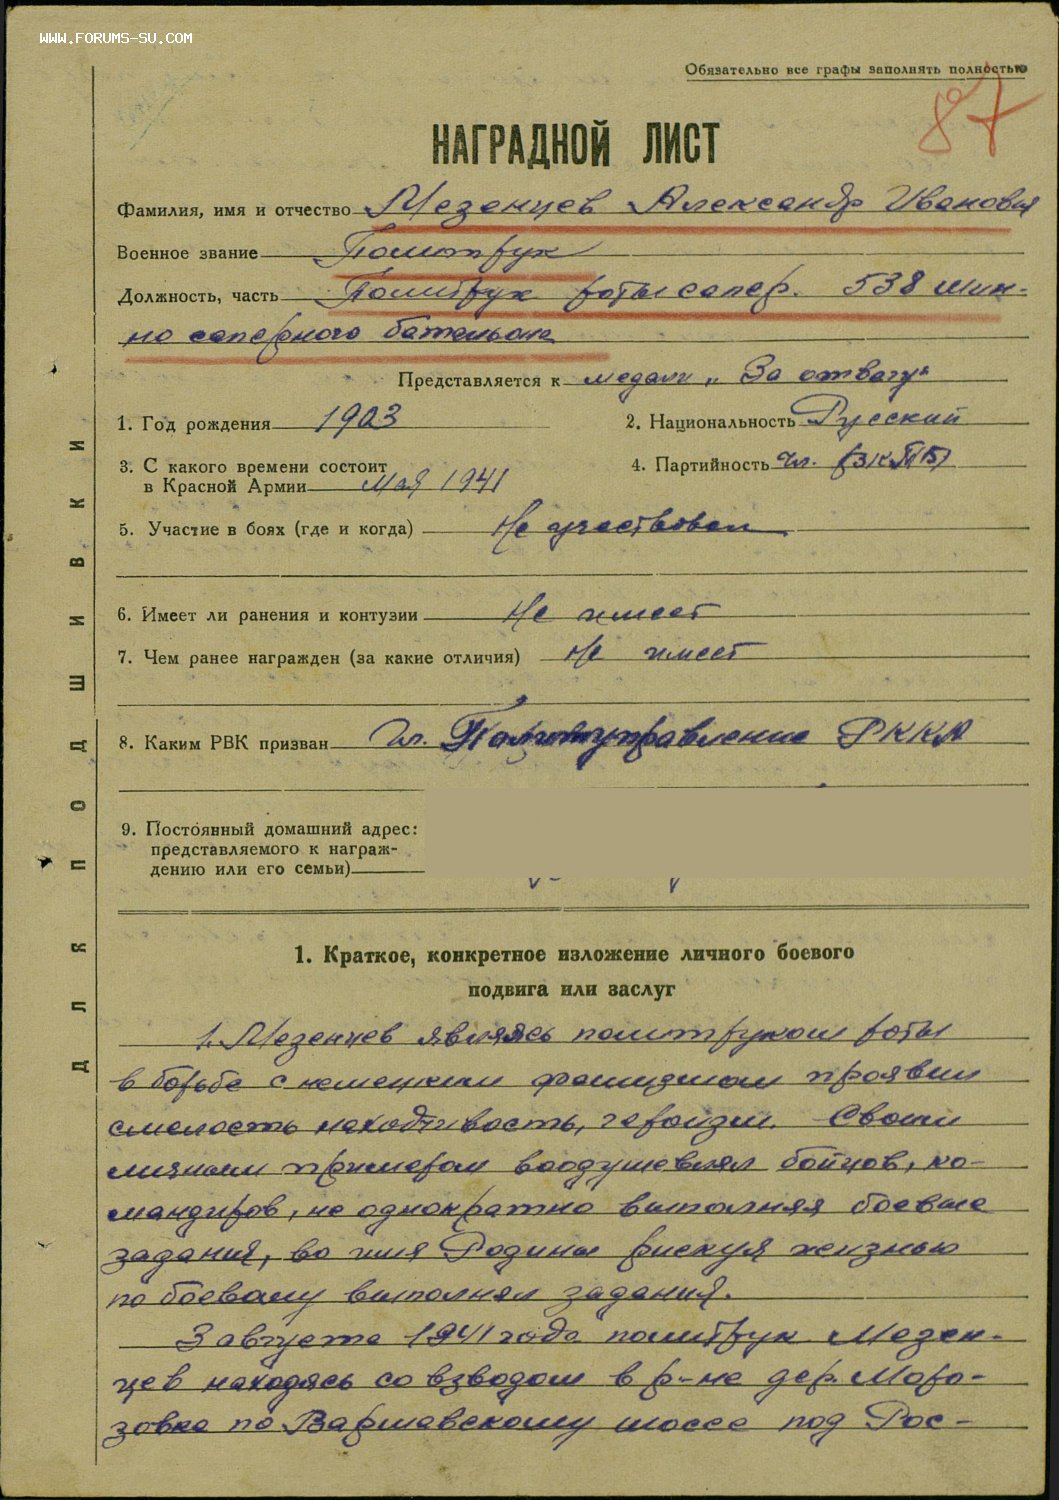 WWW.FORUMS-SU.COM
Обязательно все графы заполнять полностью
87
НАГРАДНОЙ ЛИСТ
Фамилия, имя и отчество Мезенцев Александр Иванович
Военное звание Политрук
Должность, часть Политрук роты сапер. 538 мин-
но саперного батальона
Представляется к медали „За отвагу"
1. Год рождения 1903
2. Национальность Русский
3. С какого времени состоит
в Красной Армии Мая 1941
4. Партийность Чл. ВКП(б)
5. Участие в боях (где и когда) Не участвовал
6. Имеет ли ранения и контузии Не имеет
7. Чем ранее награжден (за какие отличия) Не имеет
8. Каким РВК призван Гл. Политуправление РККА
9. Постоянный домашний адрес:
представляемого к награж-
дению или его семьи)
1. Краткое, конкретное изложение личного боевого
подвига или заслуг
1. Мезенцев являясь политруком роты
в борьбе с немецким фашизмом проявил
смелость находчивость, героизм. Своим
личным примером воодушевлял бойцов, ко-
мандиров, не однократно выполняя боевые
задания, во имя Родины рискуя жизнью
по боевому выполнял задания.
3 августа 1941 года политрук Мезен-
цев находясь со взводом в р-не дер. Моро-
зовка по Варшавскому шоссе под Рос-
ДЛЯ ПОДШИВКИ